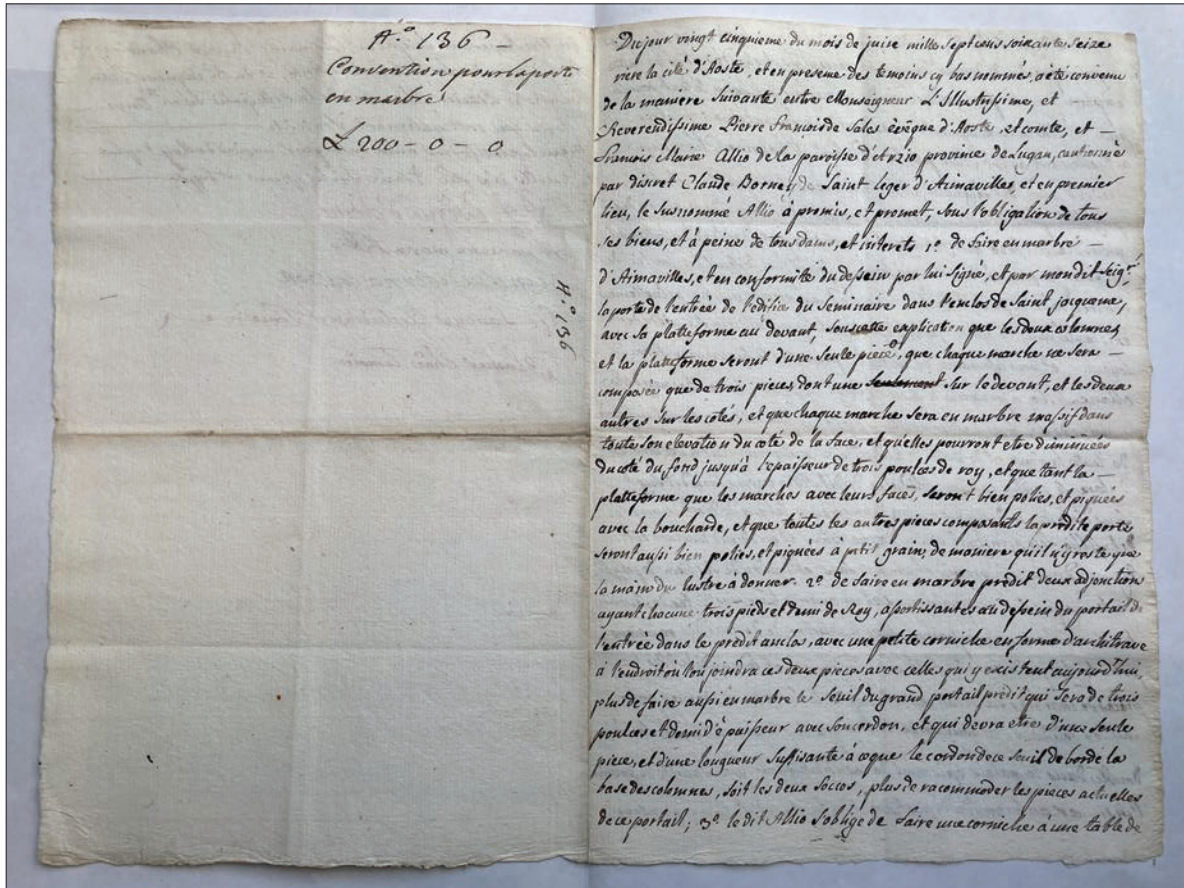 N.º 136 -
Convention pour la porte
en marbre
L 200 - 0 - 0
N.º 136
Du jour vingt cinquieme du mois de juin mille sept cens soixante seize
riere la cité d'Aoste, et en presence des temoins cy bas nommés, a été convenu
de la maniere suivante entre Monseigneur L'Illustrissime, et
Reverendissime Pierre François de Sales évêque d'Aoste, et comte, et -
François Marie Allio de la paroisse d'Arzio province de Lugan, cautionné
par discret Claude Borney de Saint leger d'Aimavilles, et en premier
lieu, le susnommé Allio à promis, et promet, sous l'obligation de tous
ses biens, et à peines de tous dams, et interets 1.º de faire en marbre -
d'Aimavilles, et en conformité du dessein par lui signé, et par mondit Seig.r
la porte de l'entrée de l'edifice du Seminaire dans l'enclos de Saint jacqueme,
avec sa platteforme au devant, sous cette explication que les deux colomnes,
et la platteforme seront d'une seule piece, que chaque marche ne sera -
composée que de trois pieces, dont une seulement sur le devant, et les deux
autres sur les cotés, et que chaque marche sera en marbre massif dans
toute son elevation du coté de la face, et qu'elles pourront etre diminuées
du coté du fond jusqu'à l'epaisseur de trois poulces de roy, et que tant la -
platteforme que les marches avec leurs faces, seront bien polies, et piquées
avec la boucharde, et que toutes les autres pieces composants la prédite porte
seront aussi bien polies, et piquées à petit grain, de maniere qu'il n'y reste que
la main du lustre à donner. 2º de faire en marbre prédit deux adjonction
ayant chacune trois pieds et demi de Roy, assortissantes au dessein du portail de
l'entrée dans le prédit anclos, avec une petite corniche en forme d'architrave
à l'endroit où l'on joindra ces deux pieces avec celles qui y existent aujourd'hui,
plus de faire aussi en marbre le seuil du grand portail prédit qui sera de trois
poulces et demi d'épaisseur avec son cordon, et qui devra etre d'une seule
piece, et d'une longueur suffisante à ce que le cordon de ce seuil deborde la
base des colomnes, soit les deux soccos, plus de racommoder les pieces actuelles
de ce portail; 3º le dit Allio s'oblige de faire une corniche à une table de